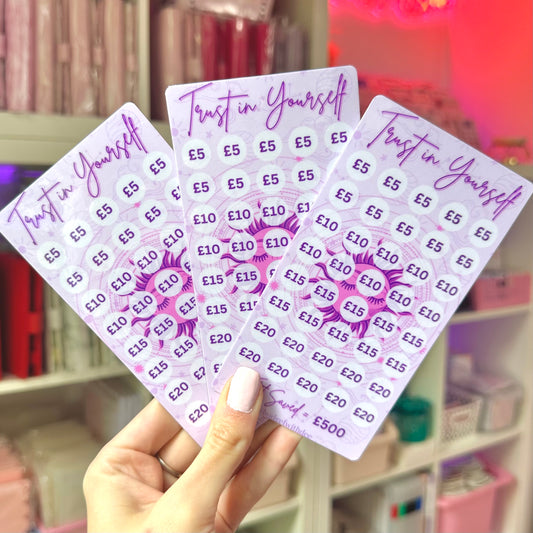 Trust in Yourself
£5 £5 £5 £5 £5
£5 £5 £5 £5
£10 £10 £10 £10
£10 £10 £10
£15 £15 £15
£15 £15
£20 £20
£20
Trust in Yourself
£5 £5 £5 £5 £5
£5 £5 £5 £5
£10 £10 £10
£10 £10 £10
£15 £15
£15 £15
£20
Trust in Yourself
£5 £5 £5 £5 £5
£5 £5 £5 £5 £5
£10 £10 £10 £10 £10
£10 £10 £10 £10 £10
£15 £15 £15 £15 £15
£15 £15 £15 £15 £15
£20 £20 £20 £20 £20
£20 £20 £20 £20 £20
Saved = £500